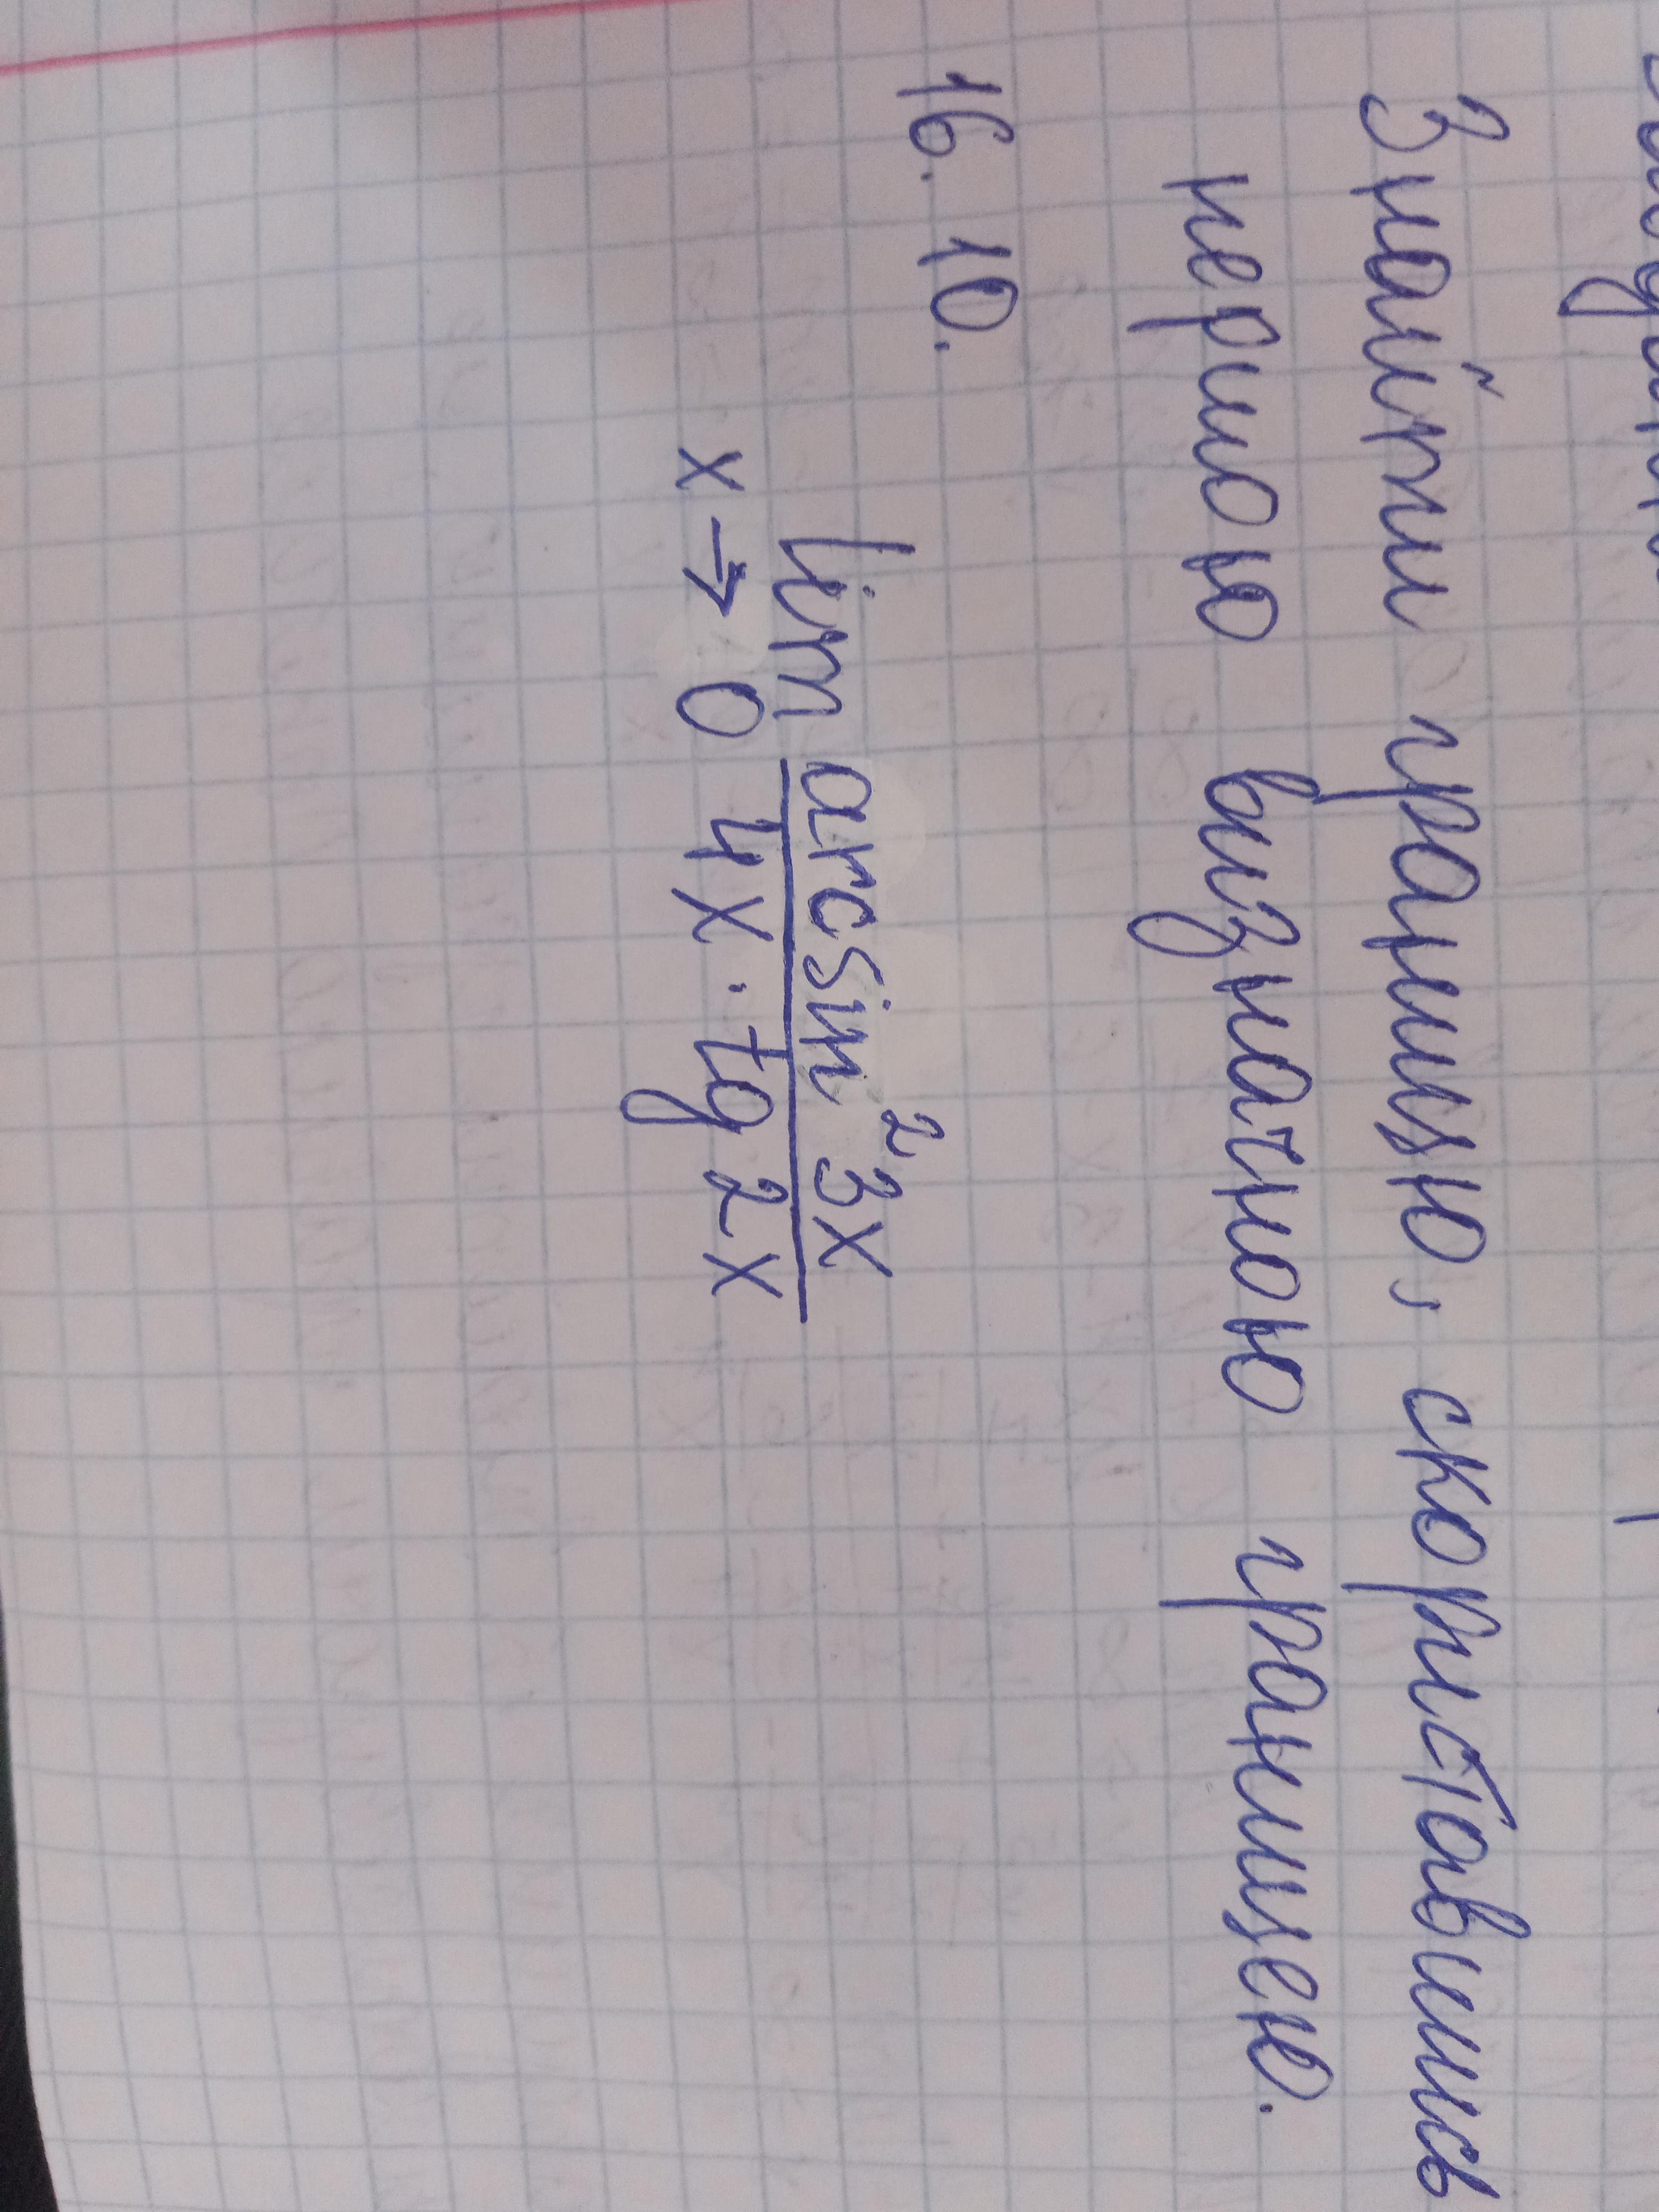 Знайти границю, скориставшись
першою визначною границею.
16. 10.
lim arcsin² 3x
x → 0 4x · tg 2x